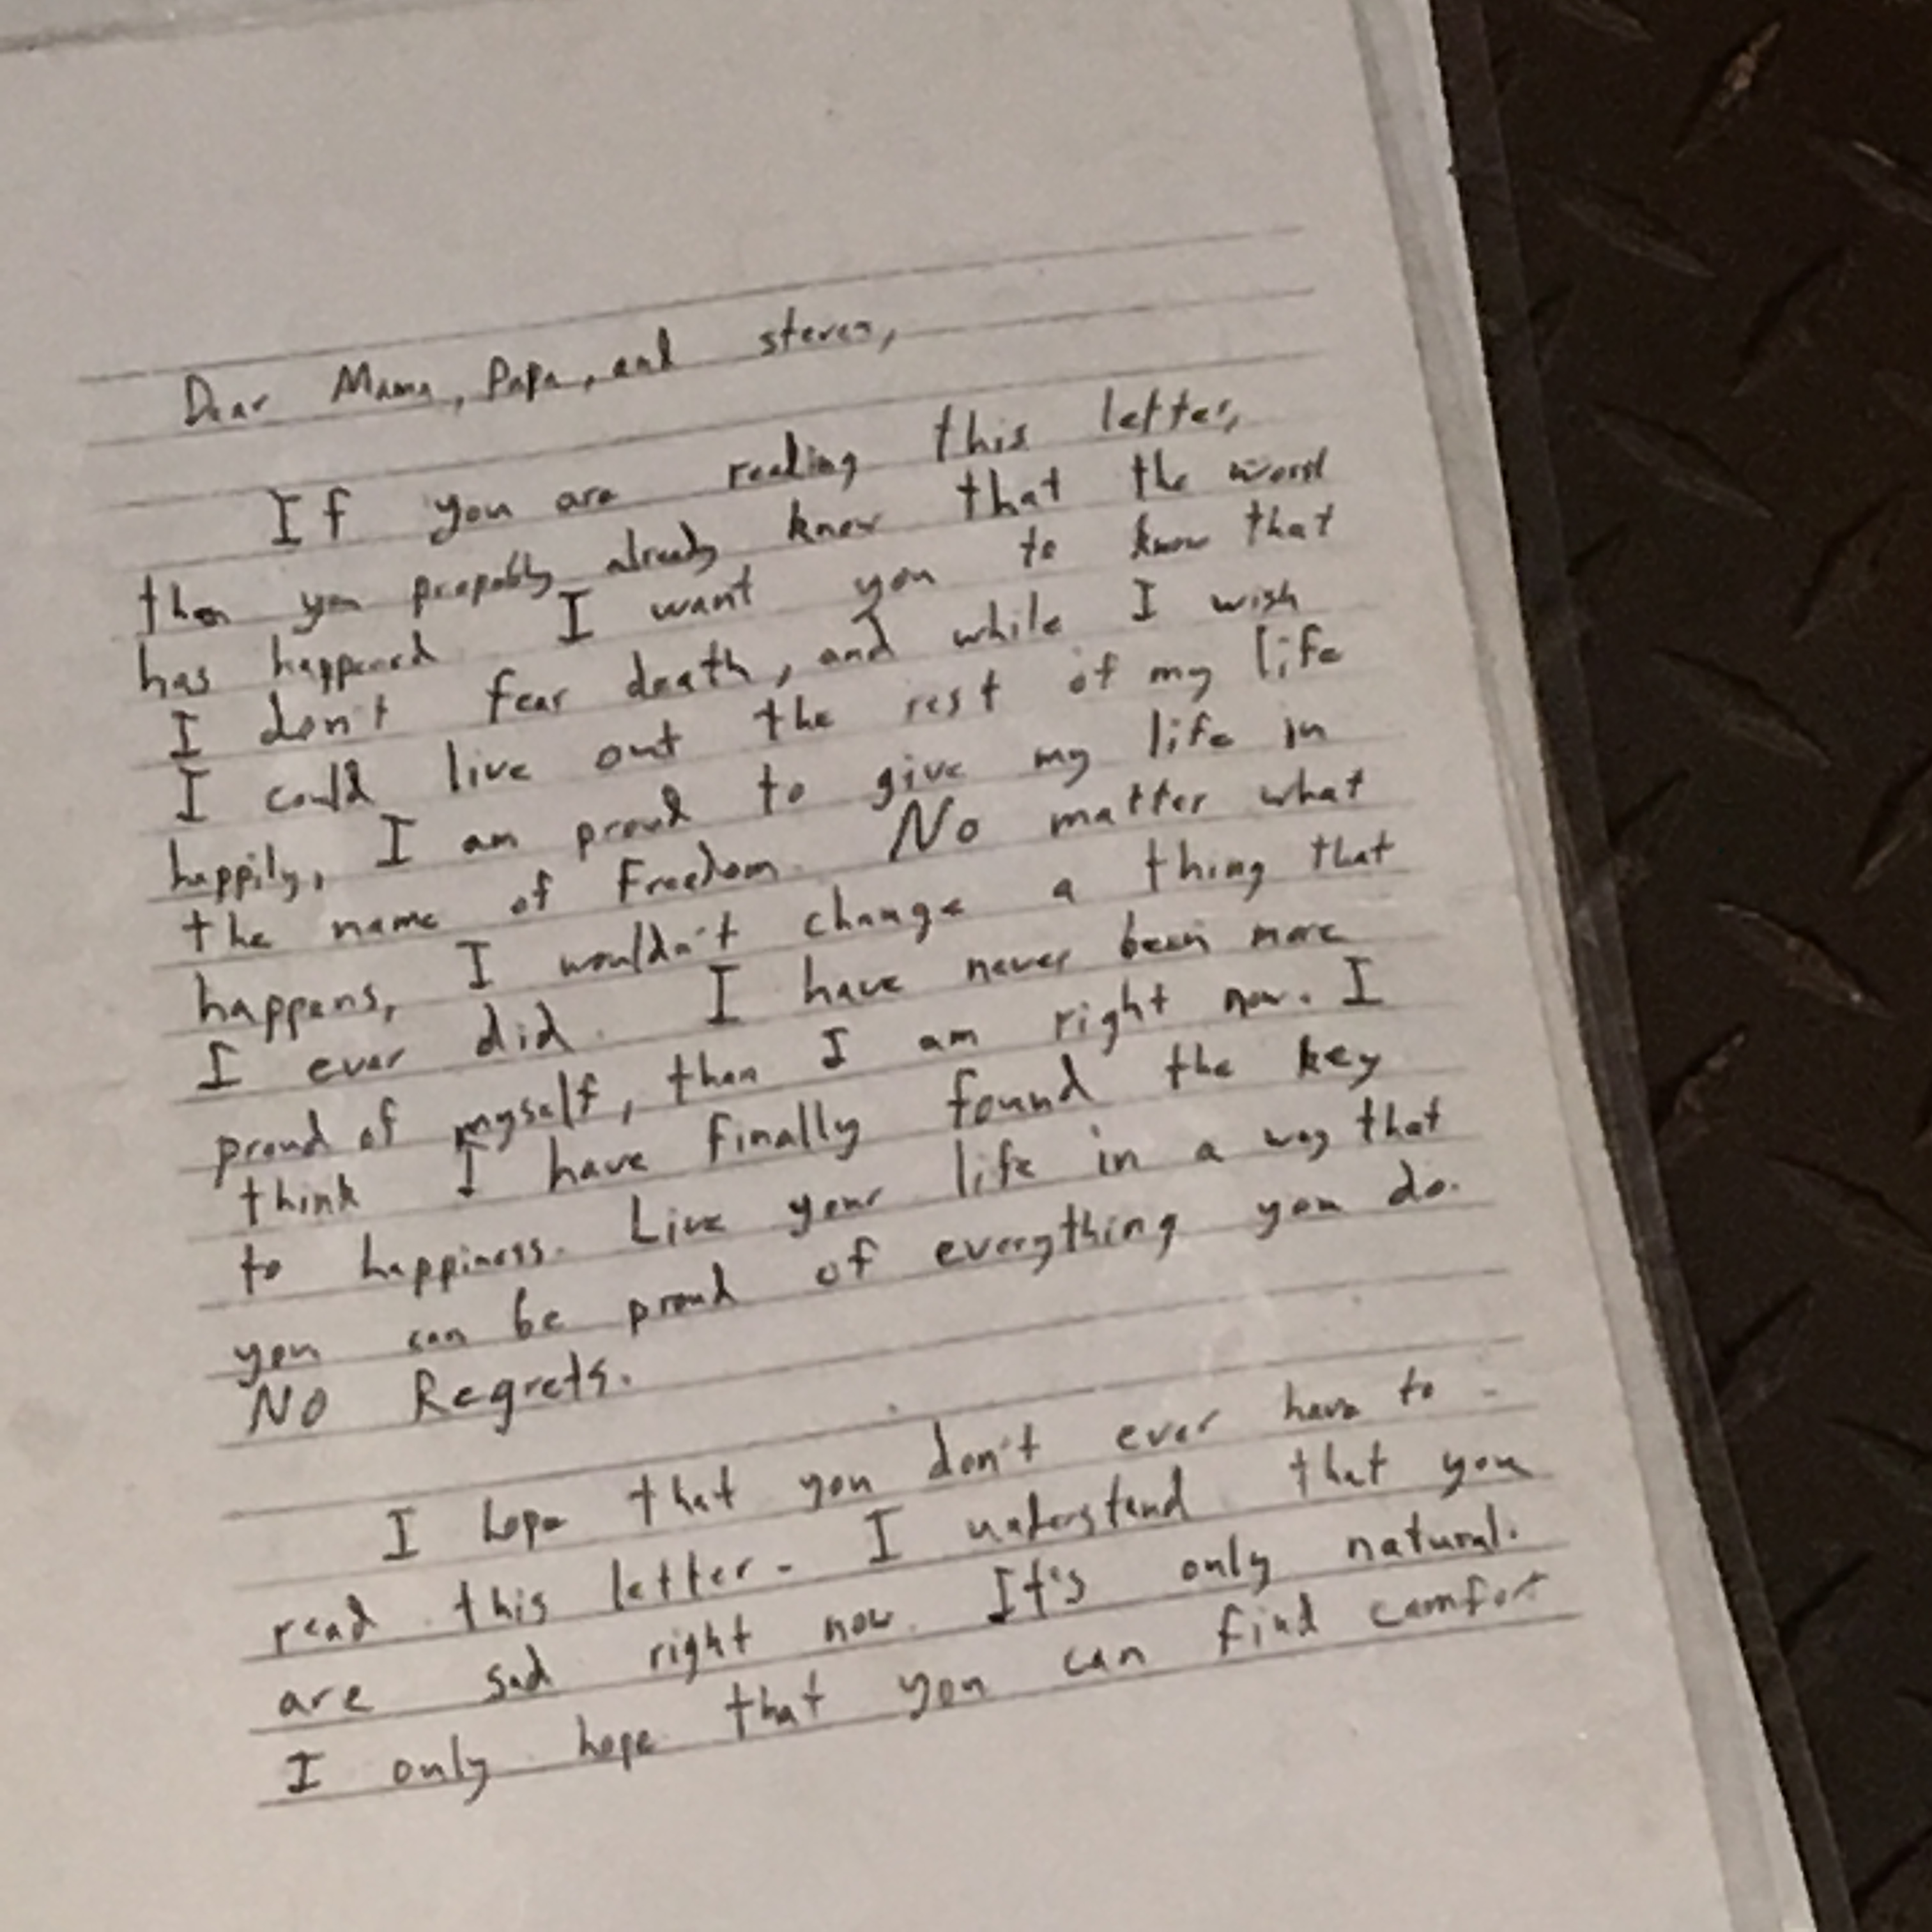 Dear Mama, Papa, and steven,
If you are reading this letter,
then you propably already know that the worst
has happened. I want you to know that
I don't fear death, and while I wish
I could live out the rest of my life
happily, I am proud to give my life in
the name of Freedom. No matter what
happens, I wouldn't change a thing that
I ever did. I have never been more
proud of myself, than I am right now. I
think I have finally found the key
to happiness. Live your life in a way that
you can be proud of everything you do.
NO Regrets.
I hope that you don't ever have to
read this letter. I understand that you
are sad right now. It's only natural.
I only hope that you can find comfort